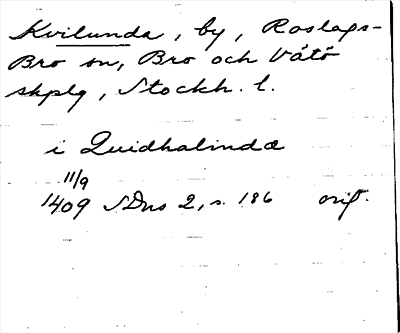 Kvilunda, by, Roslags-
Bro sn, Bro och Vätö
skplg, Stockh. l.
i Quidhalindæ
11/9
1409 SDns 2, s. 186 orig.